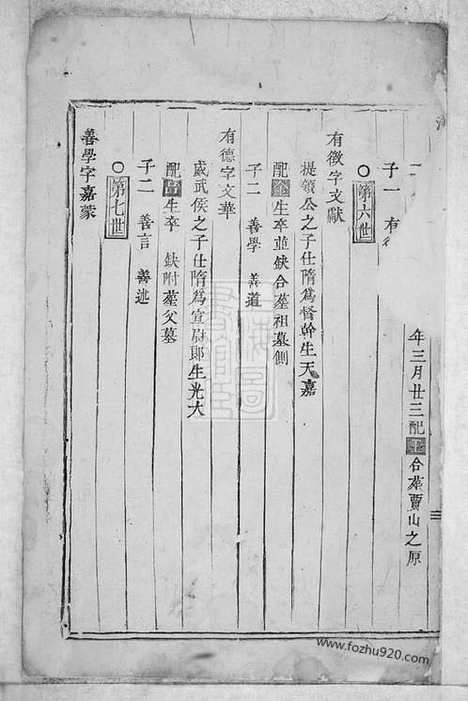 年三月廿三配王合葬賈山之原
子一 有
○第六世
有徵字文獻
提領公之子仕隋為督幹生天嘉
配金生卒並缺合葬祖墓側
子二 善學 善道
有德字文華
威武侯之子仕隋為宣尉郎生光大
配 生卒 缺附葬父墓
子二 善言 善述
○第七世
善學字嘉蒙
www.fozhu920.com